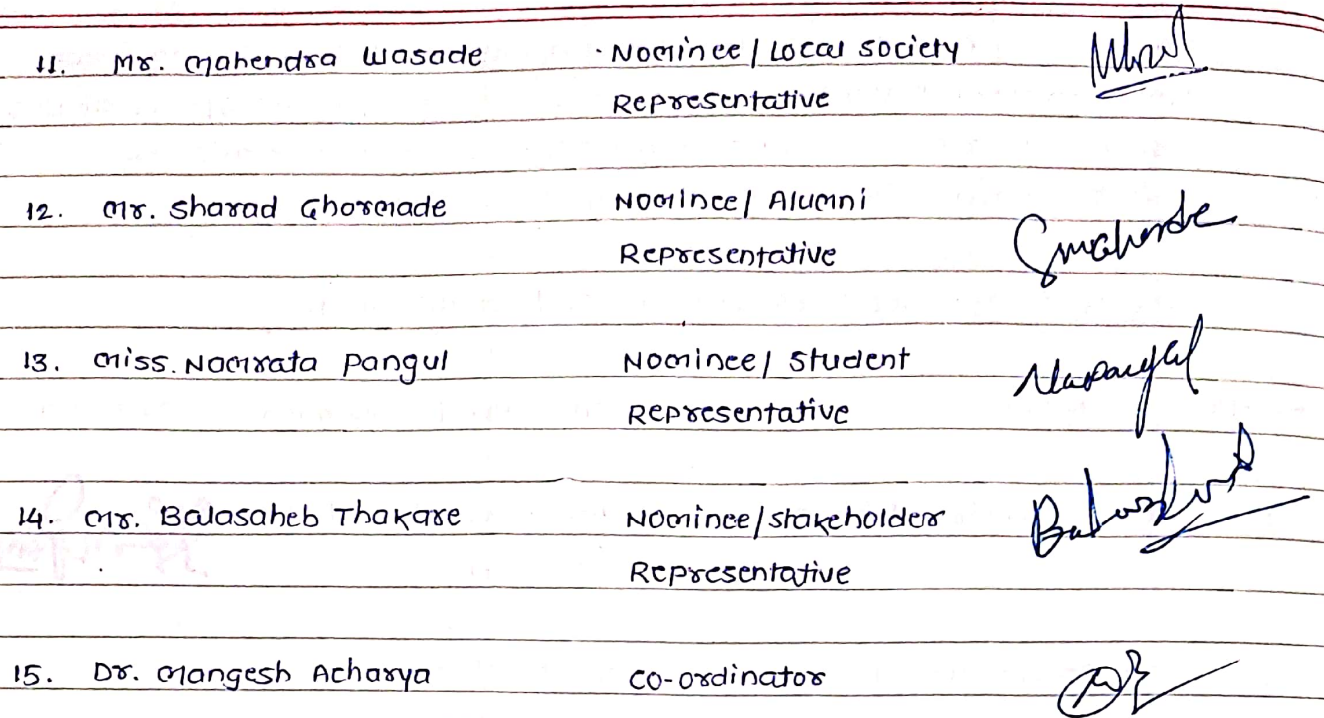 11. Mr. Mahendra Wasade Nominee / Local society
Representative
12. Mr. Sharad Ghormade Nominee / Alumni
Representative
13. Miss. Namrata Pangul Nominee / Student
Representative
14. Mr. Balasaheb Thakare Nominee / stakeholder
Representative
15. Dr. Mangesh Acharya CO-ordinator